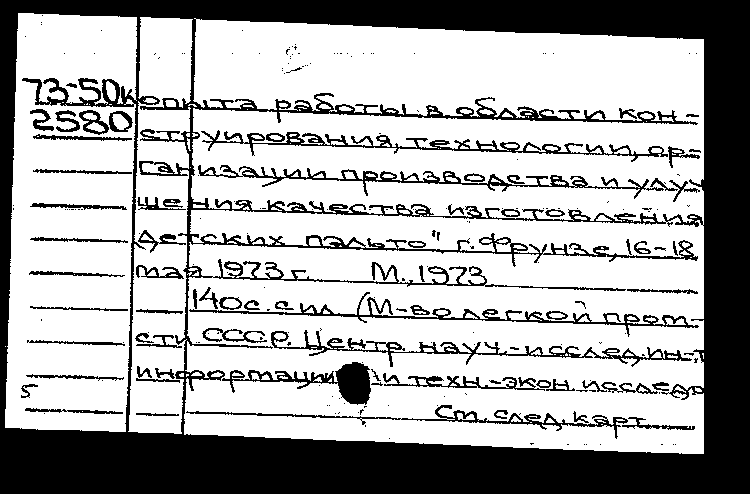 2
73-50к опыта работы в области кон-
2580 струирования, технологии, ор-
ганизации производства и улуч
шения качества изготовления
детских пальто" г. Фрунзе, 16-18
мая 1973 г. М., 1973
140с. с ил. (М-во легкой пром-
сти СССР. Центр. науч.-исслед. ин-т
информации и техн.-экон. исследо
5
См. след. карт.